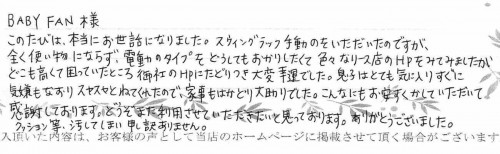 BABY FAN 様
このたびは、本当にお世話になりました。スウィングラック手動のをいただいたのですが、
全く使い物にならず、電動のタイプをどうしてもおかりしたくて色々なリース店のHPをみてみましたが
どこも高くて困っていたところ御社のHPにたどりつき大変重宝でした。息子はとても気に入りすぐに
気嫌もなおりスヤスヤとねてくれたので、家事もはかどり大助りでした。こんなにもお安くかしていただいて
感謝しております。どうぞまた利用させていただきたいと思っております。ありがとうございました。
クッション等、汚してしまい申し訳ありません。
入頂いた内容は、お客様の声として当店のホームページに掲載させて頂く場合がございます